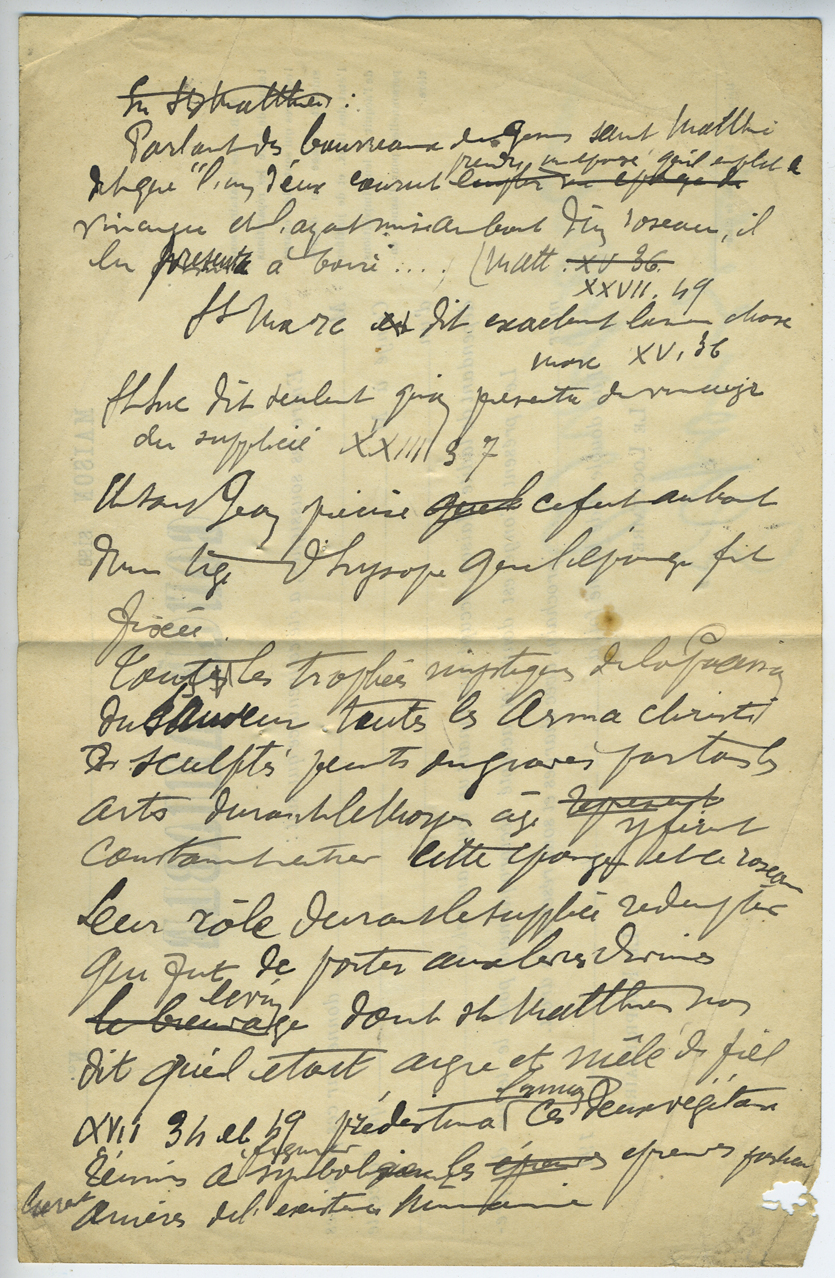 St Matthieu :
Parlant des bourreaux de Jésus saint Matthi
dit que "l'un d'eux courut prendre une éponge qu'il emplit de
vinaigre et l'ayant mis au bout d'un roseau, il
lui présenta à boire .... (Matt. XV 36.
XXVII. 49
St Marc dit exactement la même chose
marc XV, 36
St Luc dit seulement qu'on présenta du vinaigre
au supplicié XXIII 37
Et saint Jean précise que ce fut au bout
d'une tige d'hysope que l'éponge fut
fixée.
Tous les trophées mystiques de la Passion
du Sauveur toutes les Arma christi
sculptés peints ou gravés par tous les
arts durant le Moyen âge represent
y firent
constamment entrer cette éponge et ce roseau
Leur rôle durant le supplice rédempteur
qui fut de porter aux lèvres divines
le breuvage dont st Matthieu nous
dit qu'il etait aigre et mêlé de fiel
XVII 34 et 49 prédestina ces deux végétaux
figurer
réunis à symboliser les épreuves
amères de l'existence humaine